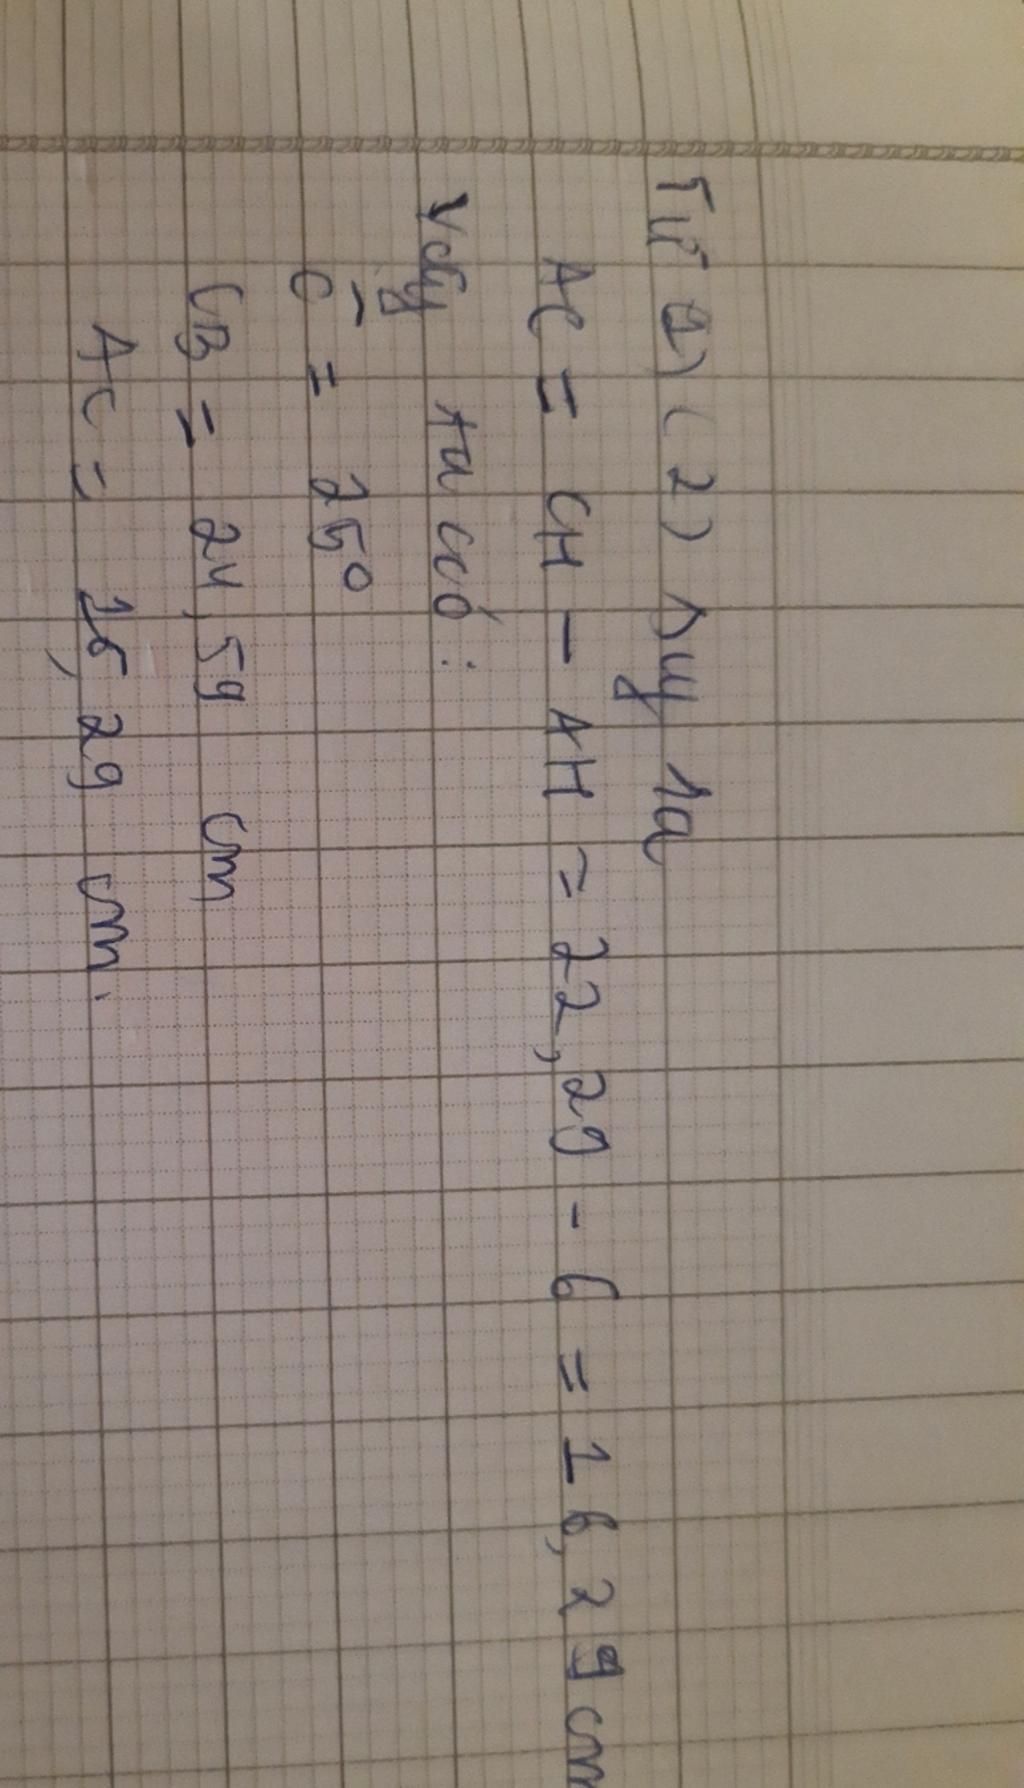 Từ (1) (2) suy ra
AC = CH - AH = 22,29 - 6 = 16,29 cm
Vậy ta có :
Ĉ = 25°
CB = 24,59 cm
AC = 16,29 cm.